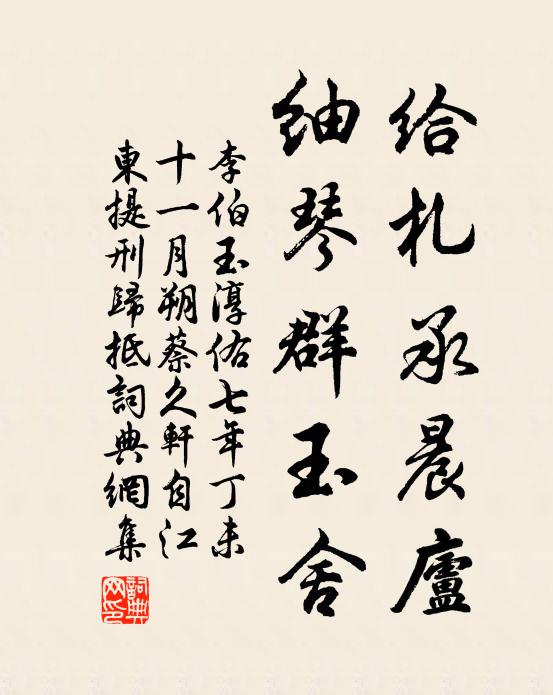 给札承晨廬
紬琴群玉舍
李伯玉淳佑七年丁未
十一月朔蔡久軒自江
東提刑歸抵詞典網集
詞典
网印